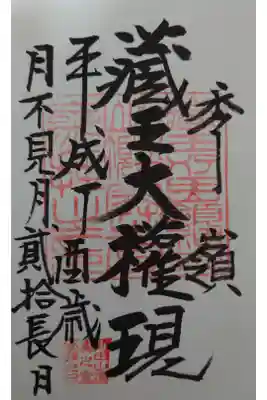 秀嶺
藏王大權現
平成丁酉歳
月不見月貳拾長月